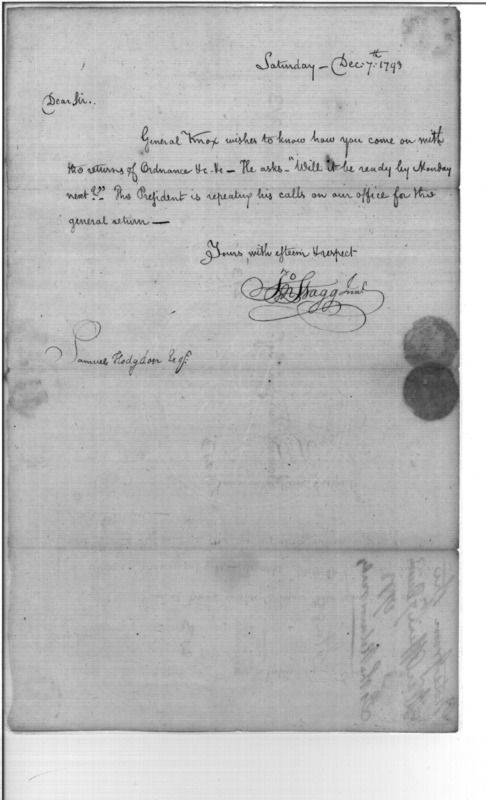 Saturday – Dec: 7.th 1793
Dear Sir.
General Knox wishes to know how you come on with
the returns of Ordnance &c. &c – He asks – "Will it be ready by Monday
next?" The President is repeating his calls on our office for the
general return —
Yours, with esteem & respect
Jno Stagg Junr.
Samuel Hodgdon Esqr.